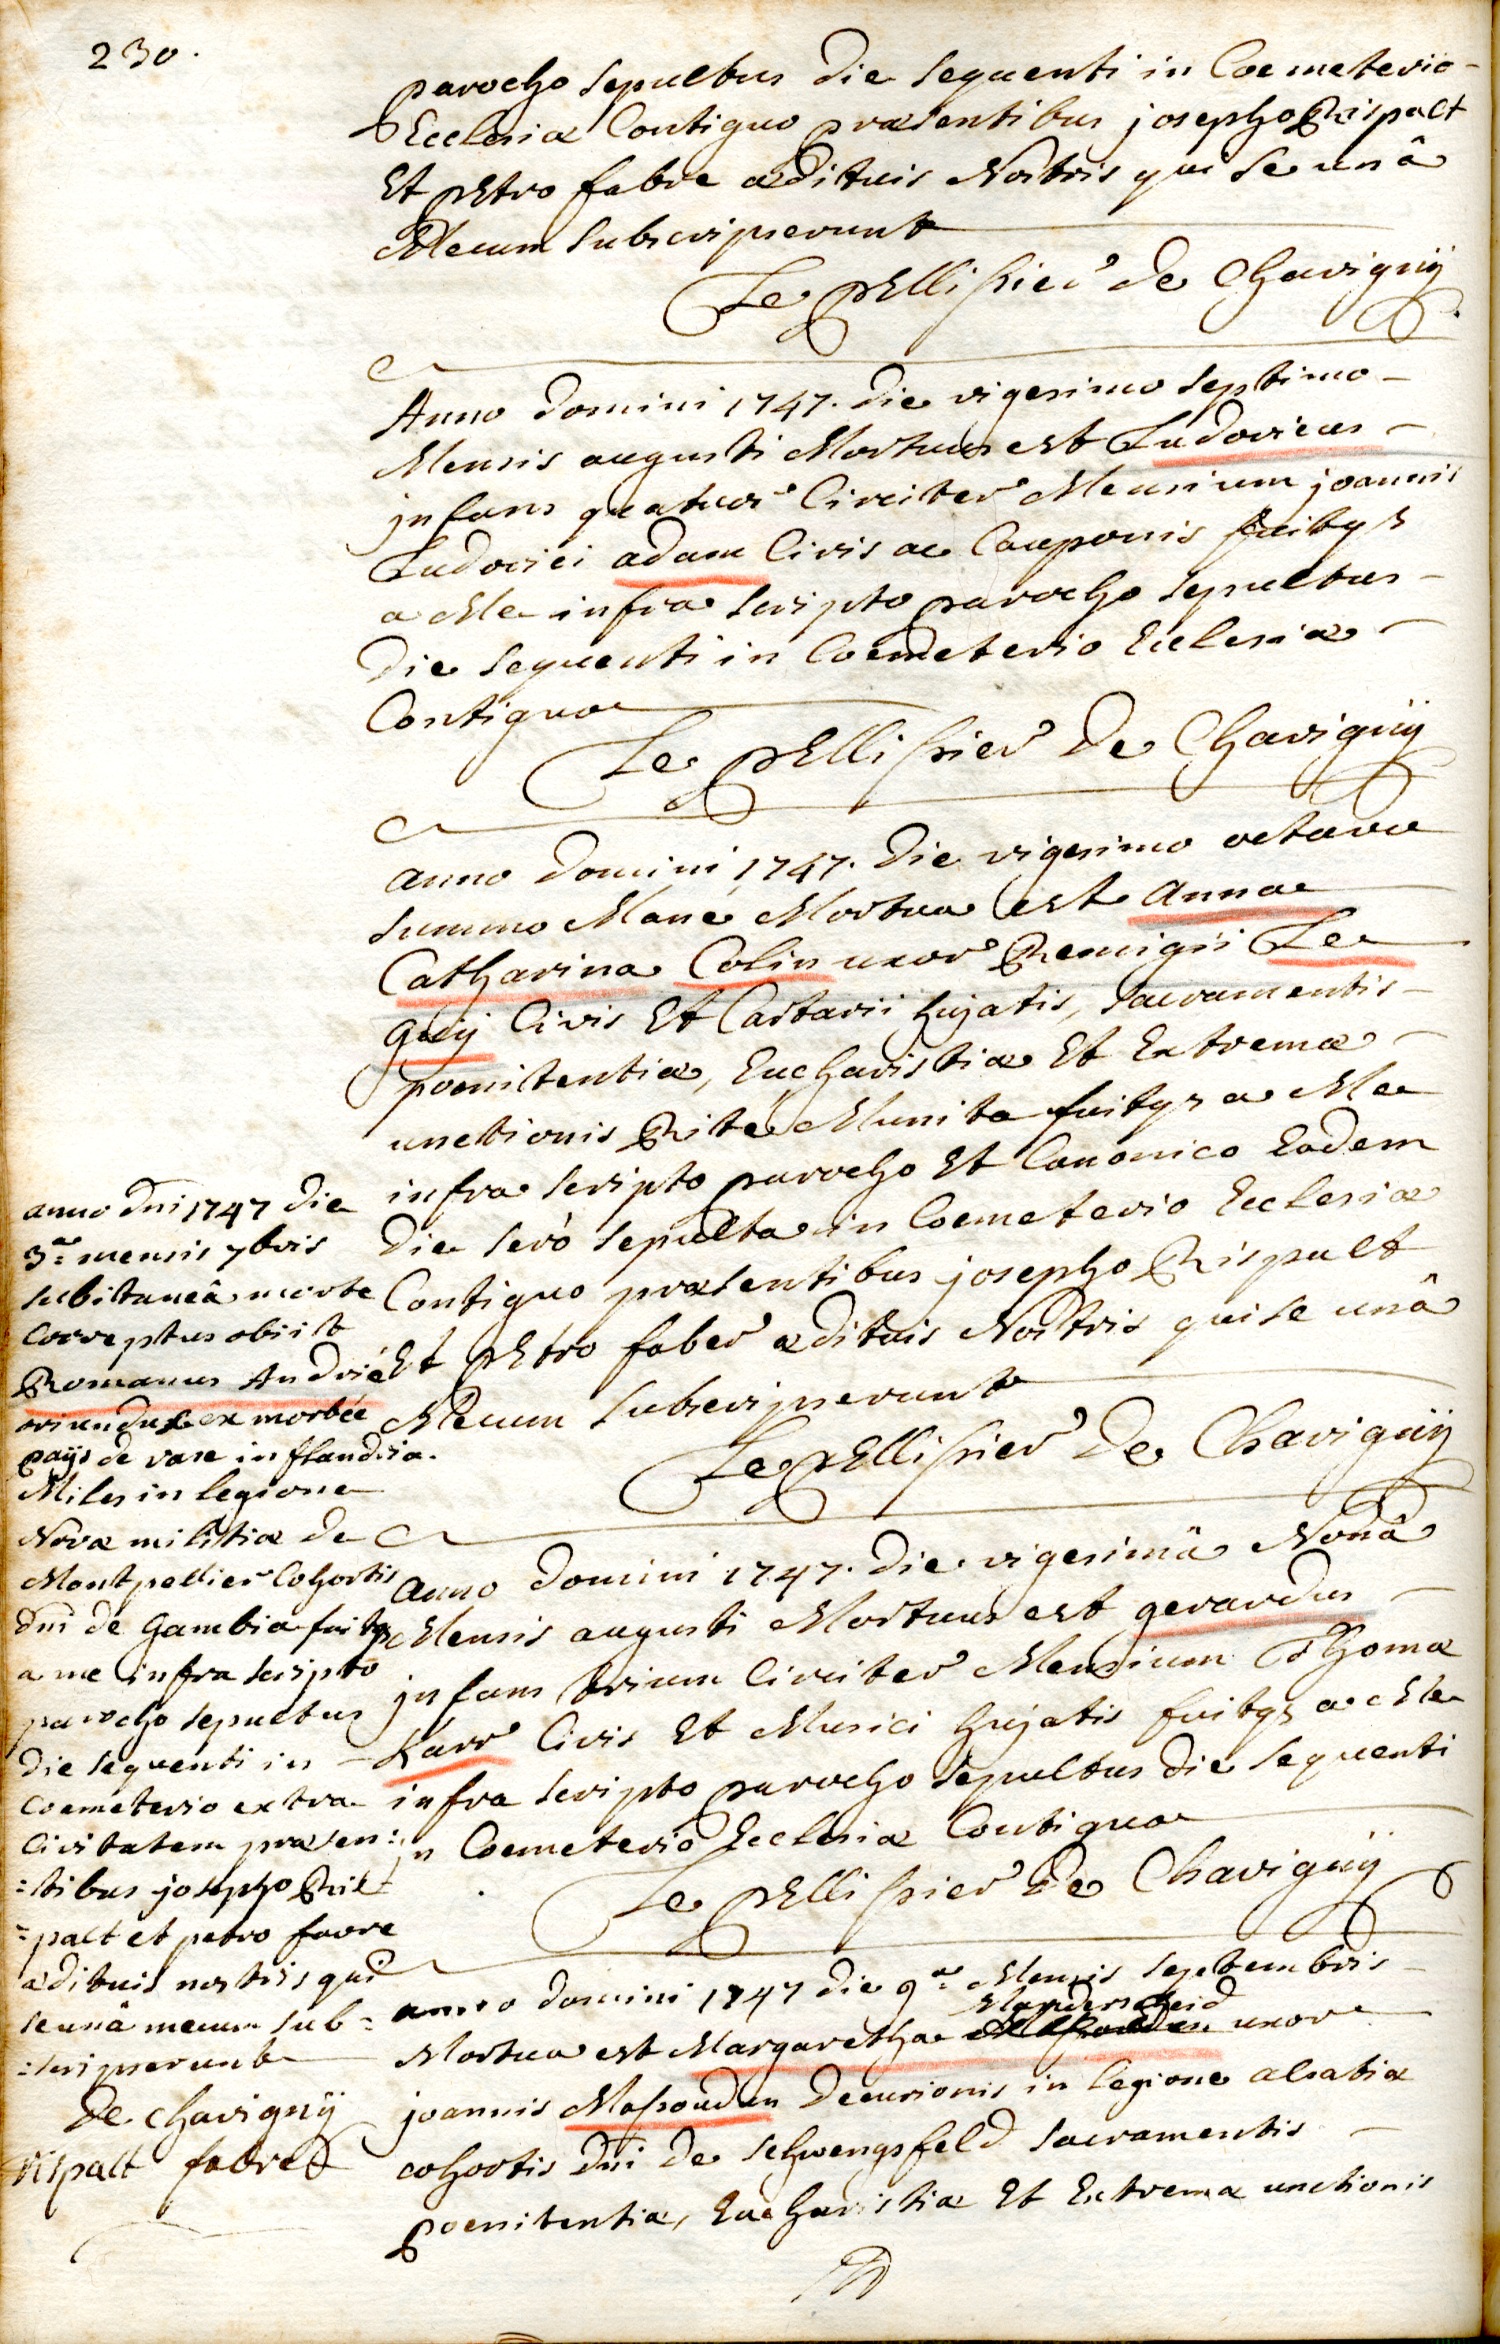 230.
parocho sepultus die sequenti in Coemeterio
Ecclesiæ Contiguo præsentibus josepho Rispalt
Et pEtro fabre ædituis Nostris qui se unâ
Mecum subscripserunt
Le pEllissier de Chavignÿ
Anno domini 1747. die vigesimo septimo
Mensis augusti Mortuus est Ludovicus
jnfans quatuor Circiter Mensium joannis
Ludovici adam Civis ac Cauponis fuitqs
a Me infra scripto parocho sepultus
die sequenti in Coemeterio Ecclesiæ
Contiguo
Le pEllissier De Chavignÿ
anno domini 1747. die vigesimo octavo
summo Mane Mortua est Anna
Catharina Colin uxor Remigii Le
Guÿ Civis Et Cartarii hujatis, sacramentis
poenitentiæ, Eucharistiæ Et Extremæ
unctionis Rite Munita fuitqs a Me
infra scripto parocho Et Canonico Eadem
die serò sepulta in Coemeterio Ecclesiæ
Contiguo præsentibus josepho Rispalt
Et pEtro faber ædituis Nostris qui se unâ
Mecum subscripserunt
Le pEllissier De Chavignÿ
anno domini 1747. die vigesimâ Nonâ
Mensis augusti Mortuus est gerardus
jnfans trium Circiter Mensium Thomæ
Karr Civis Et Musici hujatis fuitqs a Me
infra scripto parocho sepultus die sequenti
jn Coemeterio Ecclesiæ Contiguo
Le pEllissier De Chavignÿ
anno domini 1747 die 9a Mensis septembris
Manderscheid
Mortua est Margaretha uxor
joannis Massoudin Decurionis in legione alsatiæ
cohortis Dni De schwengsfeld sacramentis
poenitentiæ, Eucharistiæ Et Extremæ unctionis
anno dni 1747 die
3a mensis 7bris
subitaneâ morte
correptus obiit
Romanus Andrié
oriundus ex morbée
paÿs de vase in flandria.
Miles in legione
Novæ militiæ de
Montpellier Cohortis
dni de Gambia fuitqs
a me infra scripto
parocho sepultus
die sequenti in
coemeterio extra
Civitatem præsen:
=tibus josepho Ris=
=palt et petro favre
ædituis nostris qui
se unâ mecum sub=
=scripserunt
De chavignÿ
Rispalt fabre